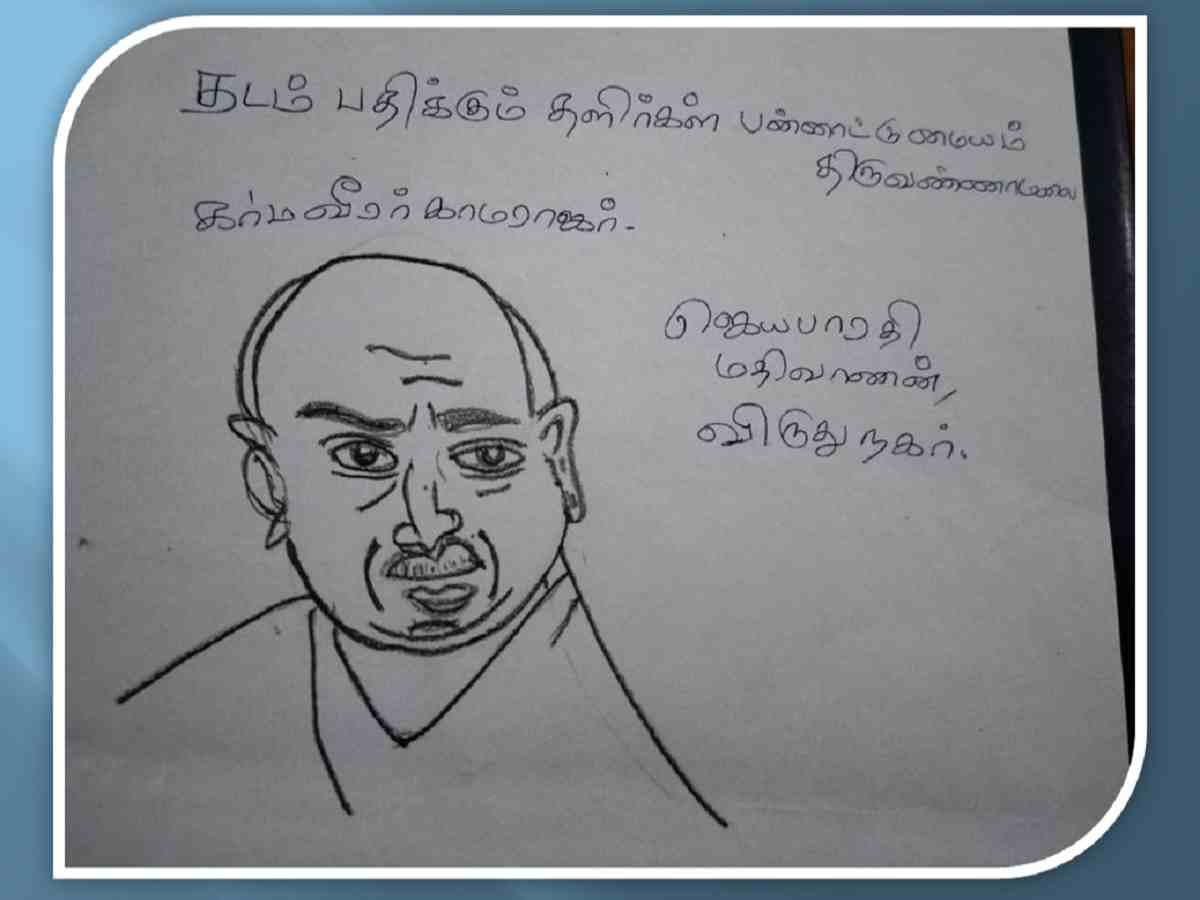 தடம் பதிக்கும் தளிர்கள் பன்னாட்டு மையம்
திருவண்ணாமலை
கர்மவீரர் காமராஜர்.
ஜெயபாரதி
மதிவாணன்,
விருதுநகர்.